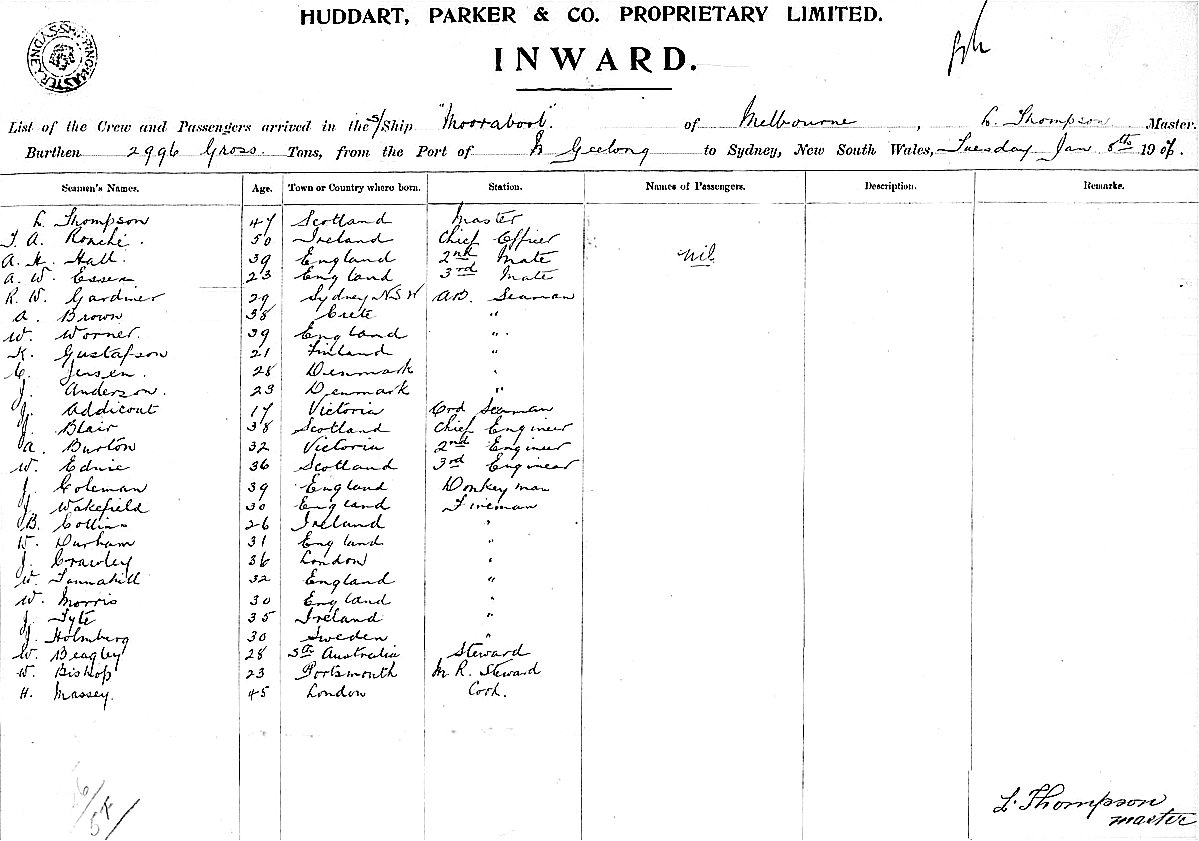 HUDDART, PARKER & CO. PROPRIETARY LIMITED.
INWARD.
SHIPPING MASTER SYDNEY
List of the Crew and Passengers arrived in the S/Ship "Moorabool" of Melbourne, L. Thompson Master.
Burthen 2996 Gross Tons, from the Port of Geelong to Sydney, New South Wales, Tuesday Jan 8th 1907.
Seamen's Names. Age. Town or Country where born. Station. Names of Passengers. Description. Remarks.
L. Thompson 47 Scotland Master
A. Ronchi. 50 Ireland Chief Officer
A. H. Hall. 39 England 2nd Mate nil
A. W. Essex 23 England 3rd Mate
R. W. Gardner 29 Sydney NSW AB. Seaman
A. Brown 38 Crete "
W. Worner. 39 England "
K. Gustafson 21 Finland "
C. Jensen. 28 Denmark "
J. Anderson. 23 Denmark "
J. Addicout 17 Victoria Ord Seaman
J. Blair 38 Scotland Chief Engineer
A. Burton 32 Victoria 2nd Engineer
W. Ednie 36 Scotland 3rd Engineer
J. Coleman 39 England Donkeyman
J. Wakefield 30 England Fireman
B. Collins 26 Ireland "
W. Durham 31 England "
J. Crawley 36 London "
W. Tannahill 32 England "
W. Morris 30 England "
J. Tyte 35 Ireland "
J. Holmberg 30 Sweden "
W. Beagley 28 Sth Australia Steward
W. Bishop 23 Portsmouth M. R. Steward
H. Massey. 45 London Cook.
L. Thompson
master